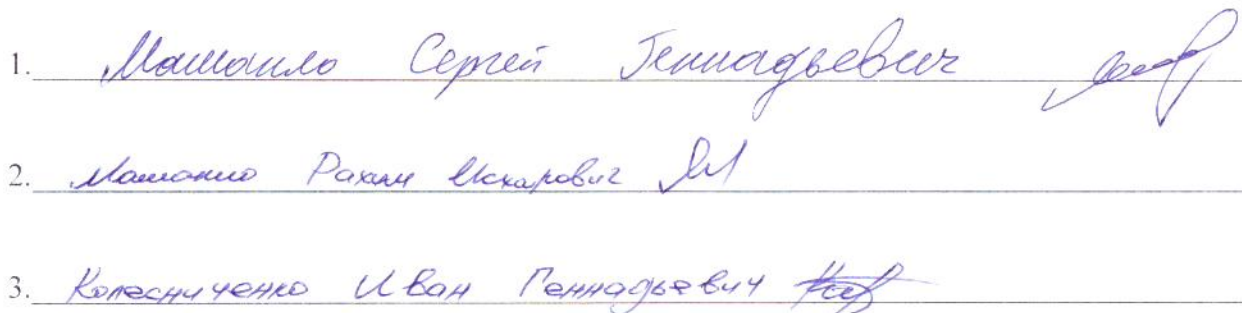 1. Машанло Сергей Геннадьевич
2. Машанло Рахим Искарович
3. Колесниченко Иван Геннадьевич